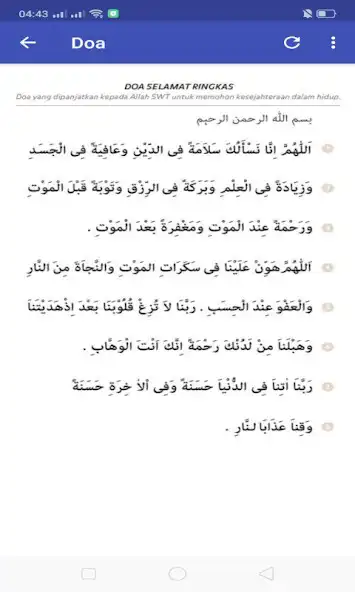 04:43
Doa
DOA SELAMAT RINGKAS
Doa yang dipanjatkan kepada Allah SWT untuk memohon kesejahteraan dalam hidup.
بسم الله الرحمن الرحيم
اَللّٰهُمَّ اِنَّا نَسْأَلُكَ سَلاَمَةً فِى الدِّيْنِ وَعَافِيَةً فِى الْجَسَدِ
وَزِيَادَةً فِى الْعِلْمِ وَبَرَكَةً فِى الرِّزْقِ وَتَوْبَةً قَبْلَ الْمَوْتِ
وَرَحْمَةً عِنْدَ الْمَوْتِ وَمَغْفِرَةً بَعْدَ الْمَوْتِ .
اَللّٰهُمَّ هَوِّنْ عَلَيْنَا فِى سَكَرَاتِ المَوْتِ وَالنَّجَاةَ مِنَ النَّارِ
وَالْعَفْوَ عِنْدَ الْحِسَبِ . رَبَّنَا لاَ تُزِغْ قُلُوْبَنَا بَعْدَ اِذْهَدَيْتَنَا
وَهَبْلَنَا مِنْ لَدُنْكَ رَحْمَةً اِنَّكَ اَنْتَ الْوَهَّابِ .
رَبَّنَا اٰتِنَا فِى الدُّنْيَا حَسَنَةً وَفِى اْلاٰ خِرَةِ حَسَنَةً
وَقِنَا عَذَابَا لنَّارِ .